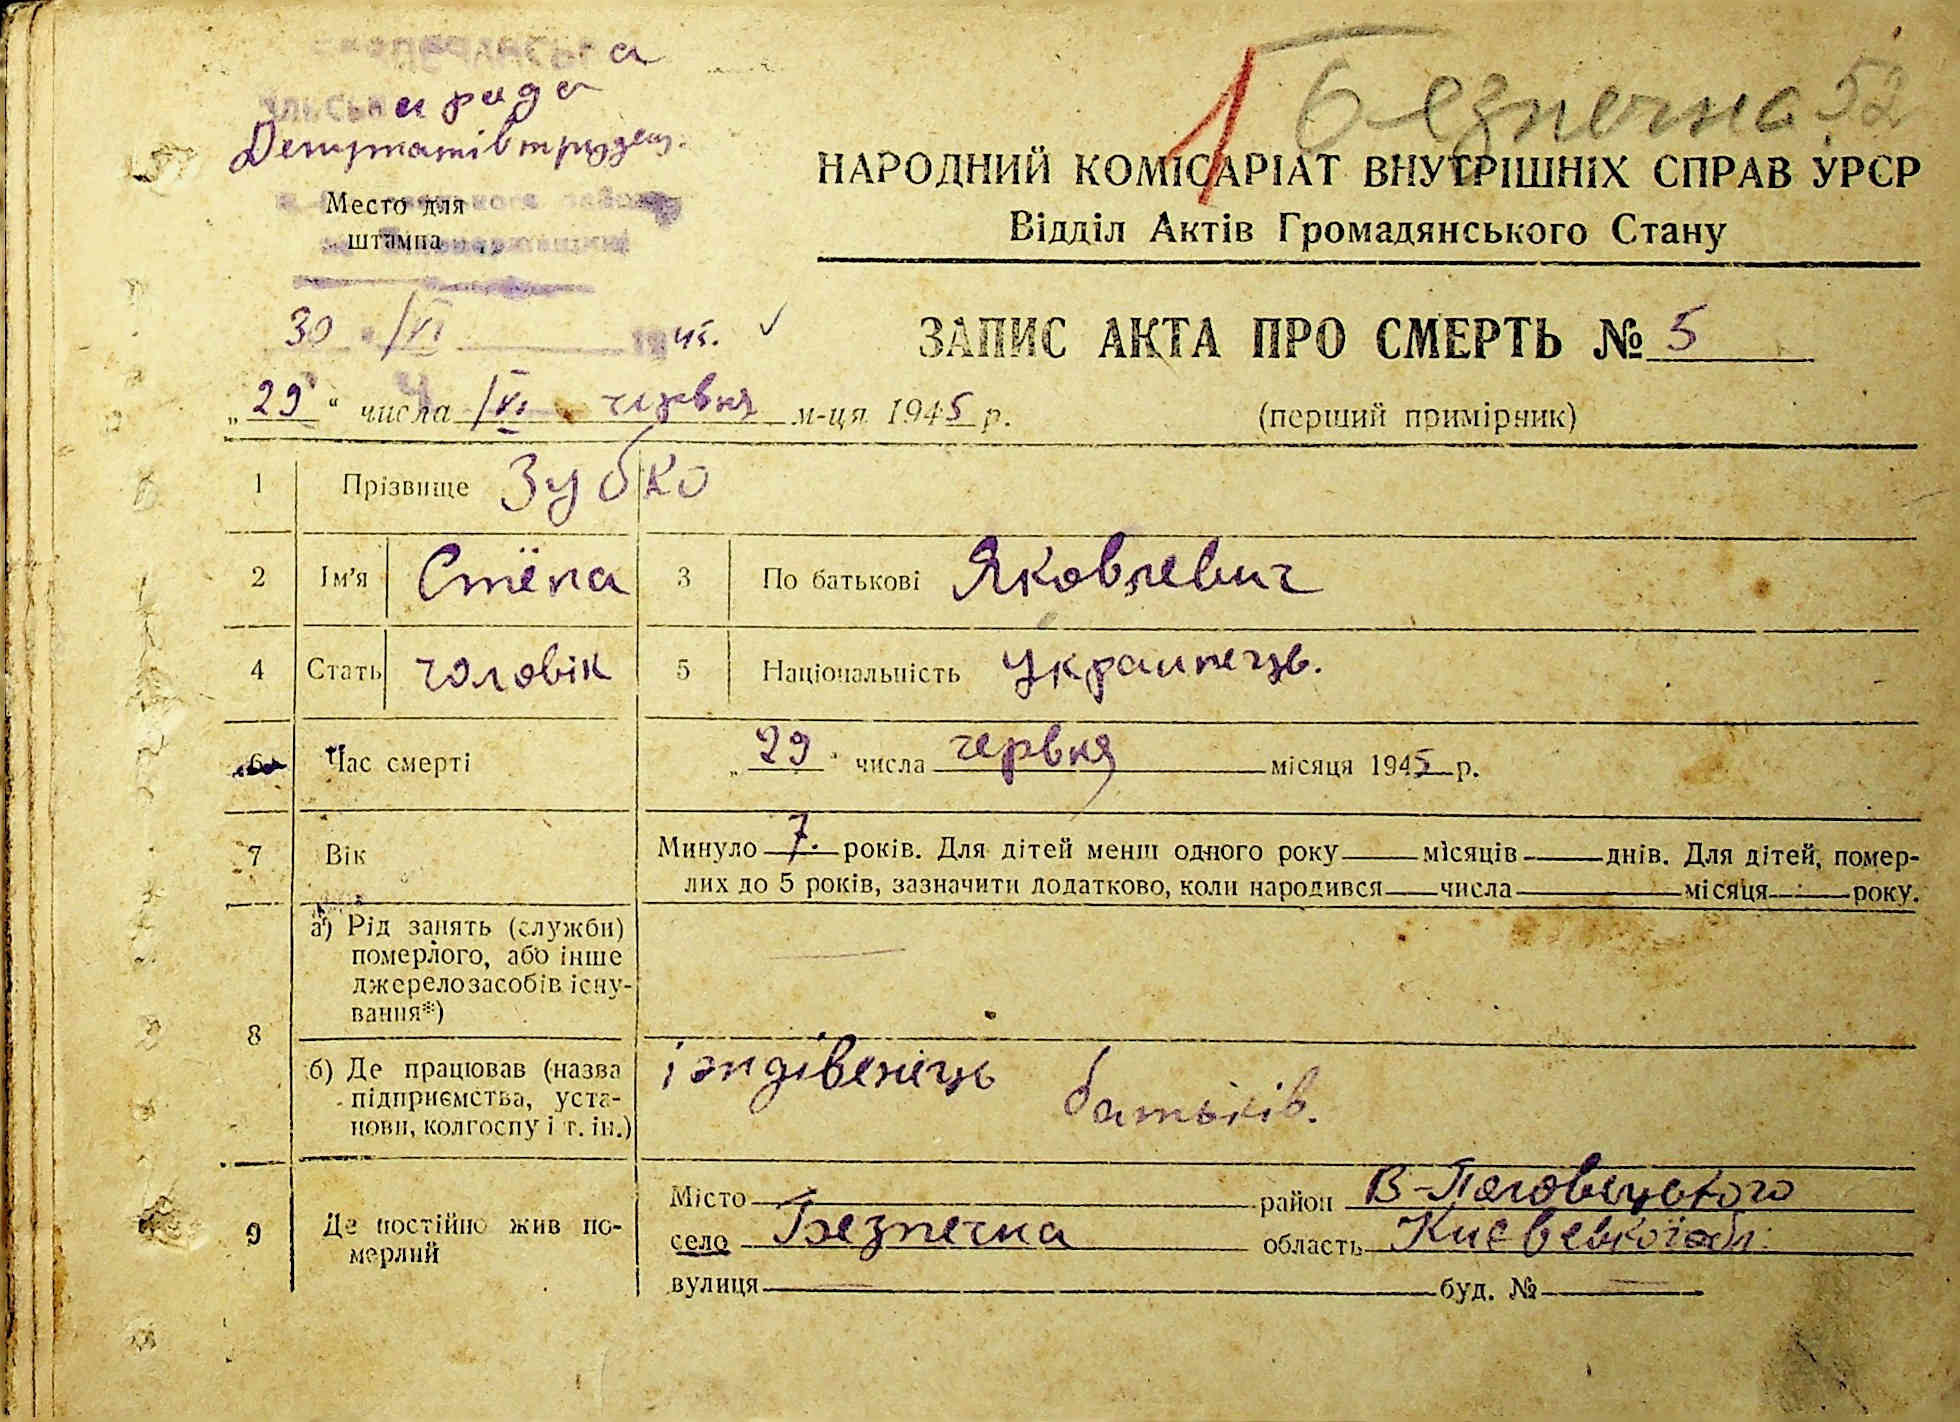 а
сільська рада
Депутатів трудящ.
Безпечна 52
НАРОДНИЙ КОМІСАРІАТ ВНУТРІШНІХ СПРАВ УРСР
Відділ Актів Громадянського Стану
Место для
штампа
30 " /VI 1945.
ЗАПИС АКТА ПРО СМЕРТЬ № 5
„29“ числа /VI червня м-ця 1945 р.
(перший примірник)
1 Прізвище Зубко
2 Ім'я Стёпа 3 По батькові Яковлевич
4 Стать чоловік 5 Національність українець.
6 Час смерті „29“ числа червня місяця 1945 р.
7 Вік Минуло 7. років. Для дітей менш одного року місяців днів. Для дітей, помер-
лих до 5 років, зазначити додатково, коли народився числа місяця року.
8 а) Рід занять (служби)
померлого, або інше
джерело засобів існу-
вання*)
б) Де працював (назва
підприємства, уста-
нови, колгоспу і т. ін.)
іэндівенець батьків.
9 Де постійно жив по-
мерлий
Місто район В-Половецького
село Безпечна область Києвської обл.
вулиця буд. №